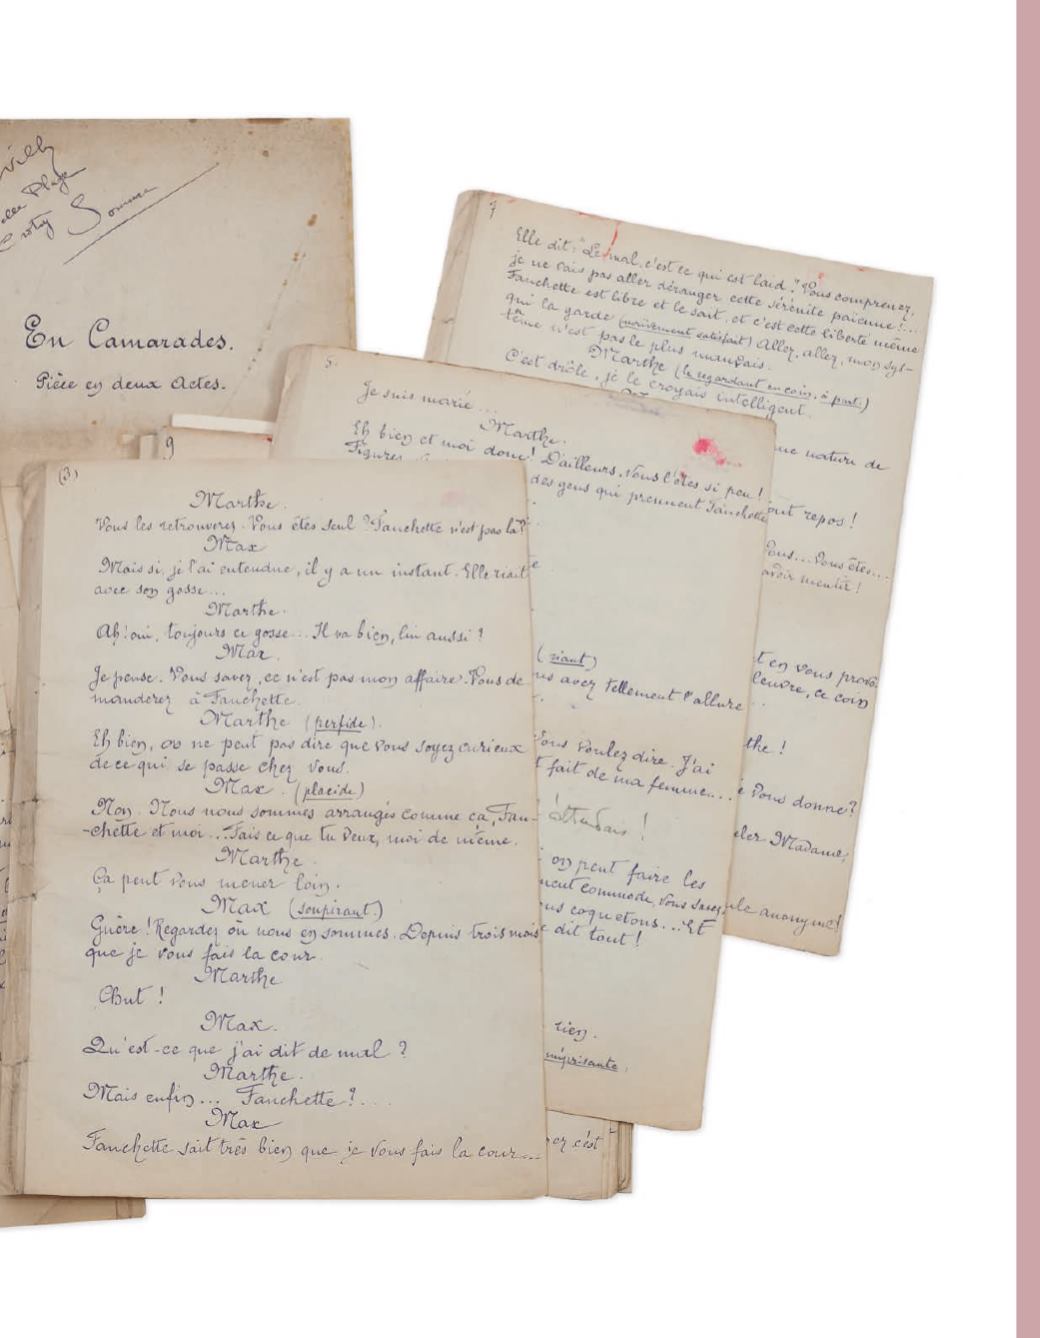 Somme
En Camarades.
Pièce en deux Actes.
7
Elle dit : "Le mal, c'est ce qui est laid". Vous comprenez,
je ne vais pas aller déranger cette sérénité païenne !...
Fanchette est libre et le sait, et c'est cette liberté même
qui la garde (mouvement satisfait) Allez, allez, mon sys-
tème n'est pas le plus mauvais.
Marthe (le regardant en coin, à part.)
C'est drôle, je le croyais intelligent.
nature de
tout repos !
Vous... Vous êtes...
avoir menti !
t en vous
ce coin
the !
Vous donne ?
Madame,
anonyme !
5.
Je suis marié...
Marthe.
Eh bien et moi donc ! D'ailleurs, vous l'êtes si peu !
des gens qui prennent Fanchette
(riant)
us avez tellement l'allure
Vous voulez dire. J'ai
t fait de ma femme...
on peut faire les
ment commode, vous savez,
us coquetons... Et
dit tout !
rien.
méprisante.
9
(3)
Marthe.
Vous les retrouverez. Vous êtes seul ? Fanchette n'est pas là ?
Max
Mais si, je l'ai entendue, il y a un instant. Elle riait
avec son gosse...
Marthe.
Ah ! oui, toujours ce gosse... Il va bien, lui aussi ?
Max.
Je pense. Vous savez, ce n'est pas mon affaire. Vous de-
manderez à Fanchette.
Marthe (perfide).
Eh bien, on ne peut pas dire que vous soyez curieux
de ce qui se passe chez vous.
Max. (placide)
Non. Nous nous sommes arrangés comme ça, Fan-
-chette et moi... Fais ce que tu veux, moi de même.
Marthe.
Ça peut vous mener loin.
Max (soupirant.)
Guère ! Regardez où nous en sommes. Depuis trois mois
que je vous fais la cour.
Marthe
Chut !
Max.
Qu'est-ce que j'ai dit de mal ?
Marthe.
Mais enfin... Fanchette ?...
Max
Fanchette sait très bien que je vous fais la cour...
c'est